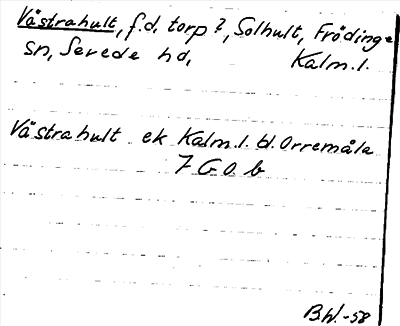 Västrahult, f.d. torp?, Solhult, Frödinge
sn, Sevede hd, Kalm.l.
Västrahult ek Kalm.l. bl. Orremåla
7 G 0. b
B.W.-58